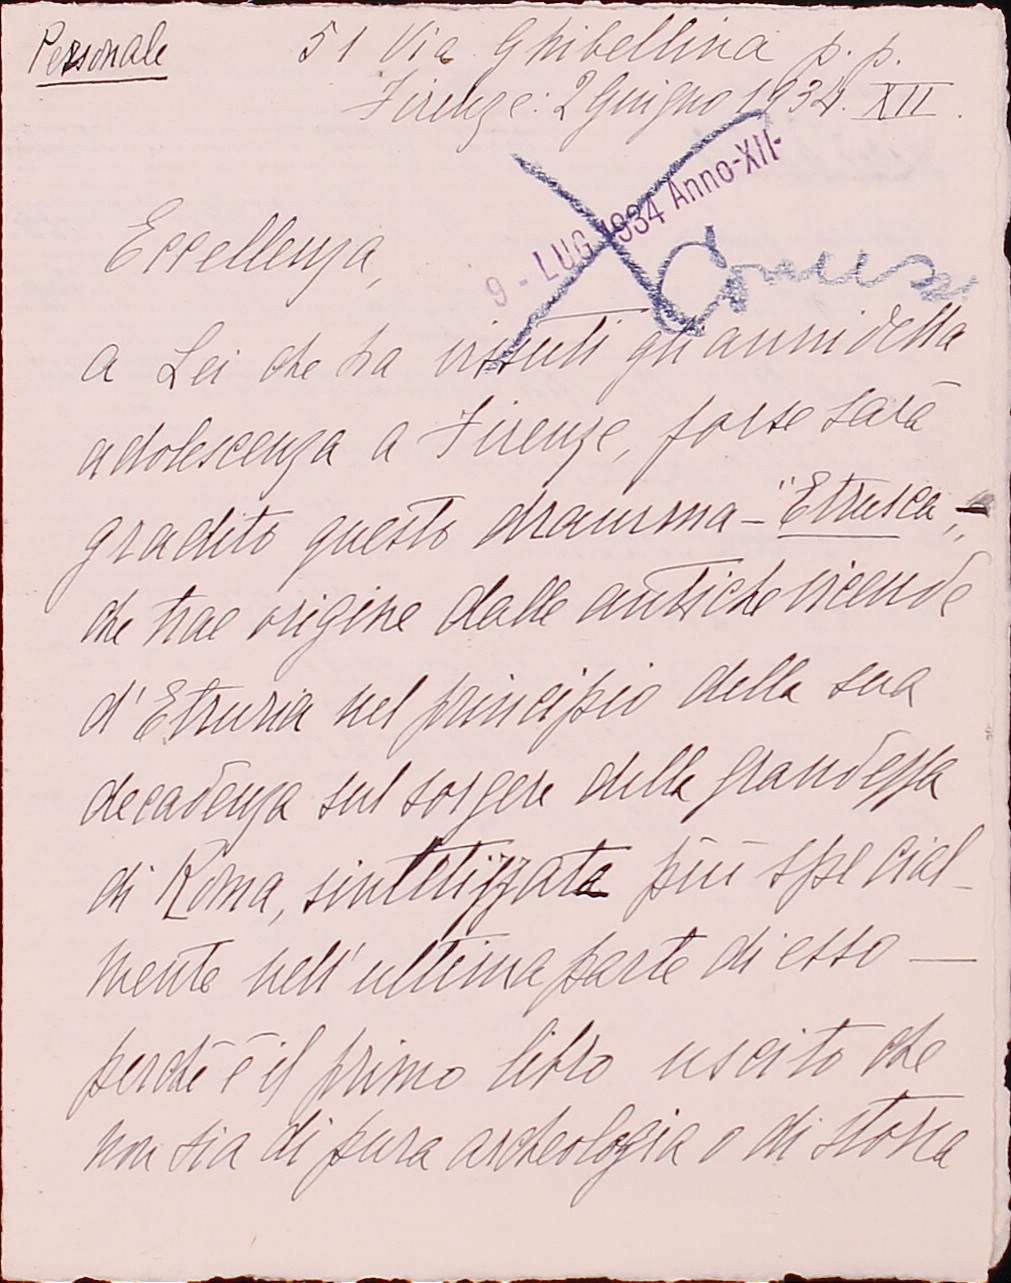 Personale
51 Via Ghibellina p. p.
Firenze: 2 Giugno 1934. XII.
9 - LUG 1934 Anno-XII-
Eccellenza,
a Lei che ha vissuti gli anni della
adolescenza a Firenze, forse sarà
gradito questo dramma - "Etrusca„ -
che trae origine dalle antiche vicende
d'Etruria nel principio della sua
decadenza sul sorgere della grandezza
di Roma, sintetizzata più special-
mente nell'ultima parte di esso —
perchè è il primo libro uscito che
non sia di pura archeologia o di storia